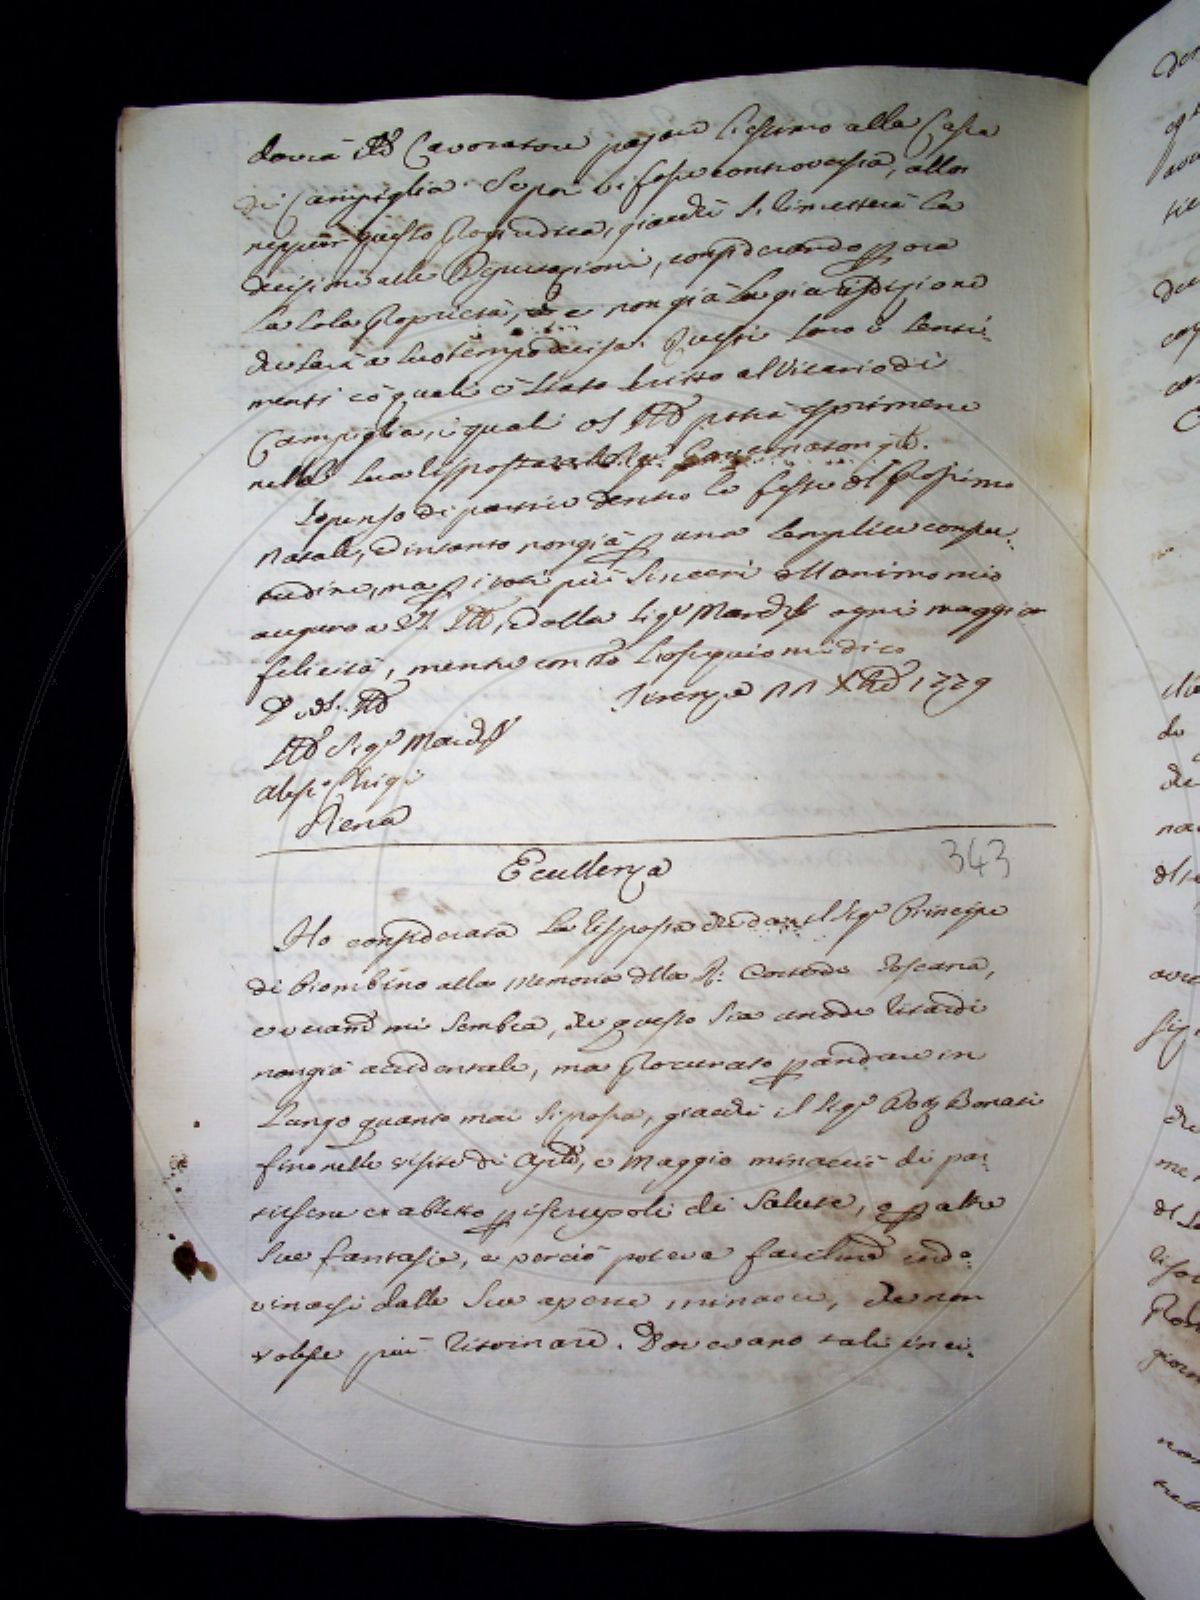 dovrà d.o Lavoratore pagare l'estimo alla Cassa
di Campiglia. Se poi vi fosse controversia, allor
neppur questo pregiudica, giacchè si rimetterà la
decisione alle Deputazioni, considerando p ora
la sola proprietà, e non già la giurisdizione
che sarà a suo tempo decisa. Questi sono i senti-
menti co' quali è stato scritto al Vicario di
Campiglia, i quali VS. Ill.ma potrà esprimere
nella sua risposta Governatore
Io penso di partire dentro le feste del prossimo
Natale, e intanto non già p una semplice consue-
tudine, ma p i voti più sinceri dell'animo mio
auguro a VS. Ill.ma, e alla Sig.ra March.sa ogni maggior
felicità, mentre con t.o l'ossequio mi dico
D. VS. Ill.ma Firenze 11 Xbre 1779
Ill.mo Sig.r March.se
Aless.o Chigi
Siena
343
Eccellenza
Ho considerata la risposta che da il Sig.r Principe
di Piombino alla memoria della R: Corte di Toscana,
e veram.e mi sembra, che questo sia un ritardo
non già accidentale, ma procurato p andare in
lungo quanto mai si possa, giacchè il Sig.r Bonaci
fino nelle visite di Aprile, e Maggio minacciò di par-
tirsene ex abrupto p iscrupoli di salute, e p altre
sue fantasie, e perciò poteva facilme indo-
vinarsi dalle sue aperte minacce, che non
volesse più ritornare. Dovevano tali inci-